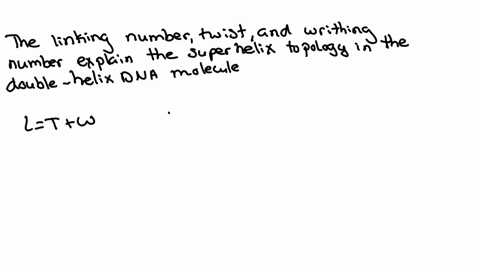 The linking number, twist, and writhing
number explain the superhelix topology in the
double-helix DNA molecule
L=T+W